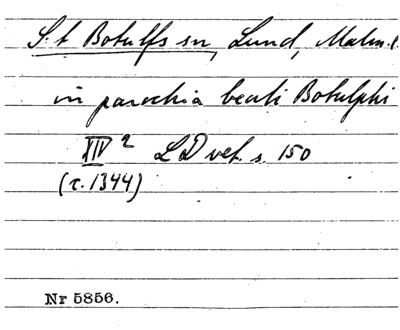 S:t Botulfs sn, Lund, Malm. l.
in parochia beati Botulphi
XIV 2 LD vet. s. 150
(c. 1344)
Nr 5856.